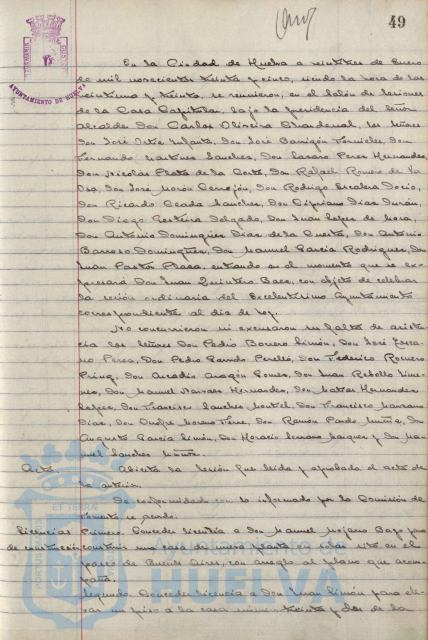 49
AYUNTAMIENTO DE HUELVA
En la Ciudad de Huelva a veintitres de Enero
de mil novecientos treinta y cinco, siendo la hora de las
veintiuna y treinta, se reunieron, en el Salón de Sesiones
de la Casa Capitular, bajo la presidencia del Señor
Alcalde Don Carlos Oliveira Chardenal, los Señores
Don José Ortiz Infante, Don José Barrigón Fornieles, Don
Fernando Martínez Sanchez, Don Lazaro Perez Hernandez,
Don Nicolas Plata de la Corte, Don Rafael Romero de la
Osa, Don José Morón Cerrejón, Don Rodrigo Escalera Bocio,
Don Ricardo Ceada Sanchez, Don Cipriano Diaz Durán,
Don Diego Delgado, Don Juan Lopez de Mora,
Don Antonio Dominguez Diaz de la Cuesta, Don Antonio
Barroso Dominguez, Don Manuel García Rodriguez, Don
Juan Pastor Plaza, entrando en el momento que se ex-
presará Don Juan Quintero Baez, con objeto de celebrar
la sesión ordinaria del Excelentísimo Ayuntamiento
correspondiente al día de hoy.
No concurrieron ni excusaron su falta de asisten-
cia los Señores Don Pedro Borrero Limón, Don José
Perez, Don Pedro Garrido Perelló, Don Federico Romero
Don Arcadio Aragón Gomez, Don Juan Rebollo Jime-
nez, Don Manuel Narvaez Hernandez, Don Matias Hernandez
Lopez, Don Francisco Sanchez Don Francisco Manzano
Diaz, Don Onofre Moreno Don Ramón Pardo Muñiz, Don
Augusto García Simón, Don Horacio Serrano Marquez y Don Ma-
nuel Sanchez
Acta Abierta la sesión fue leida y aprobada el acta de
la anterior.
De conformidad con lo informado por la Comisión de
Fomento se acordó:
Licencias Primero. Conceder licencia a Don Manuel Mojarro Bayo para
de construcción construir una casa de nueva planta en solar sito en el
paseo de Buenos Aires, con arreglo al plano que acom-
paña.
Segundo. Conceder licencia a Don Juan Limón para ele-
var un piso a la casa número treinta y dos de la
Ayuntamiento de
HUELVA